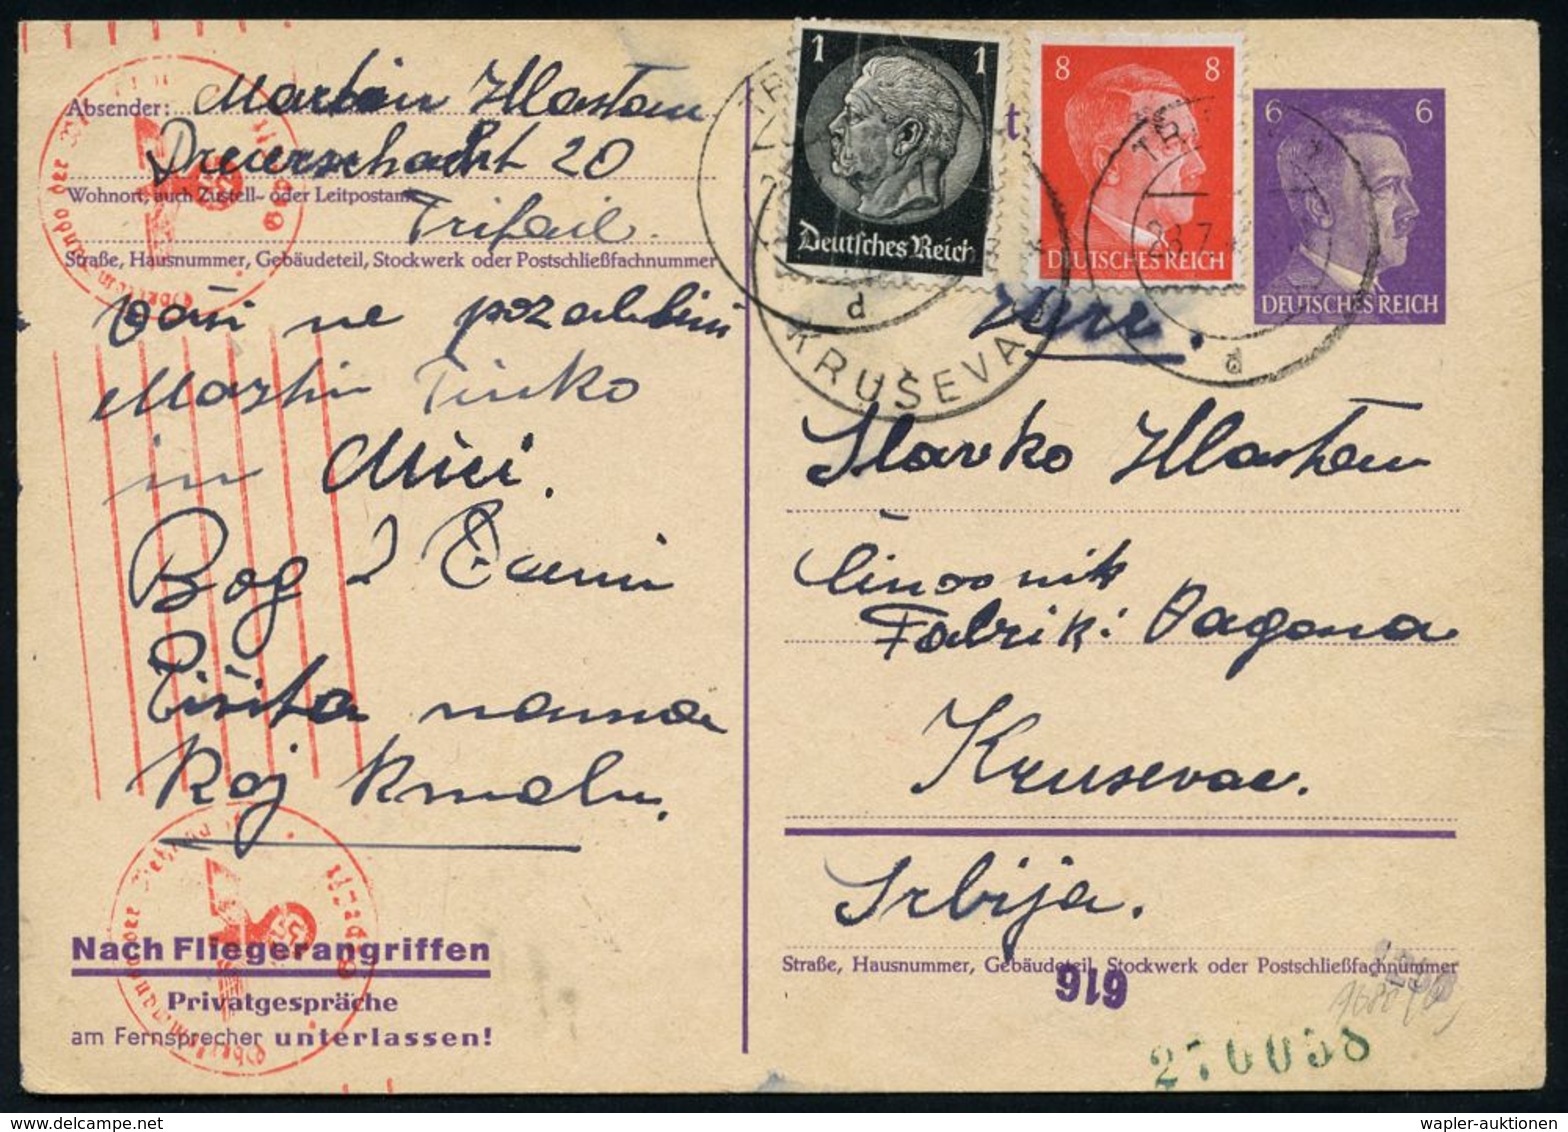 Absender: Martin Hlastan
Dreierschacht 20
Wohnort, auch Zustell- oder Leitpostamt
Trifail.
Straße, Hausnummer, Gebäudeteil, Stockwerk oder Postschließfachnummer
ne pozabim
Martin Tinko
in Mici.
Bog
Tišita nama
Kaj kmalu.
Nach Fliegerangriffen
Privatgespräche
am Fernsprecher unterlassen!
1 1
Deutsches Reich
8 8
DEUTSCHES REICH
6 6
DEUTSCHES REICH
d
KRUŠEVA
28.7
d
Slavko Hlastan
činovnik
Fabrik:
Krusevac.
Srbija.
Straße, Hausnummer, Gebäudeteil, Stockwerk oder Postschließfachnummer
919
270038
wapler-auktionen